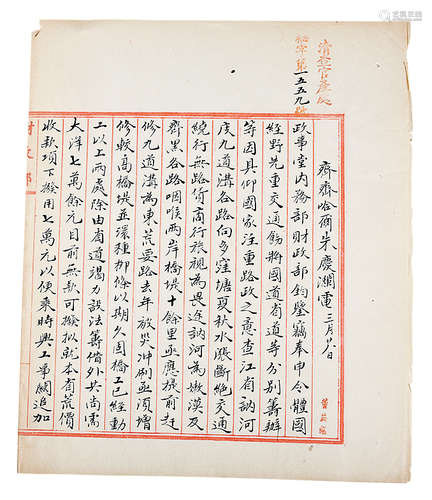 清查官產處
秘字第一五五九號
齊齊哈爾朱慶瀾電 三月廿八日
政事堂內務部財政部鈞鑒竊奉申令體國
經野先重交通飭將國道省道等分別籌辦
等因具仰國家注重路政之意查江省訥河
度九道溝各路向多窪塘夏秋水漲斷絕交通
繞行無路貨商行旅視為畏途訥河為嫩漠及
齊黑各路咽喉兩岸橋堤十餘里亟應提前趕
修九道溝為東荒要路去年放災冲刷亟須增
修較高橋堤並深種柳條以期久固橋工已經動
工以上兩處除由省道竭力設法籌借外共尚需
大洋七萬餘元目前無款可撥擬就本省荒價
收款項下撥用七萬元以便乘時興工事關追加
財政部